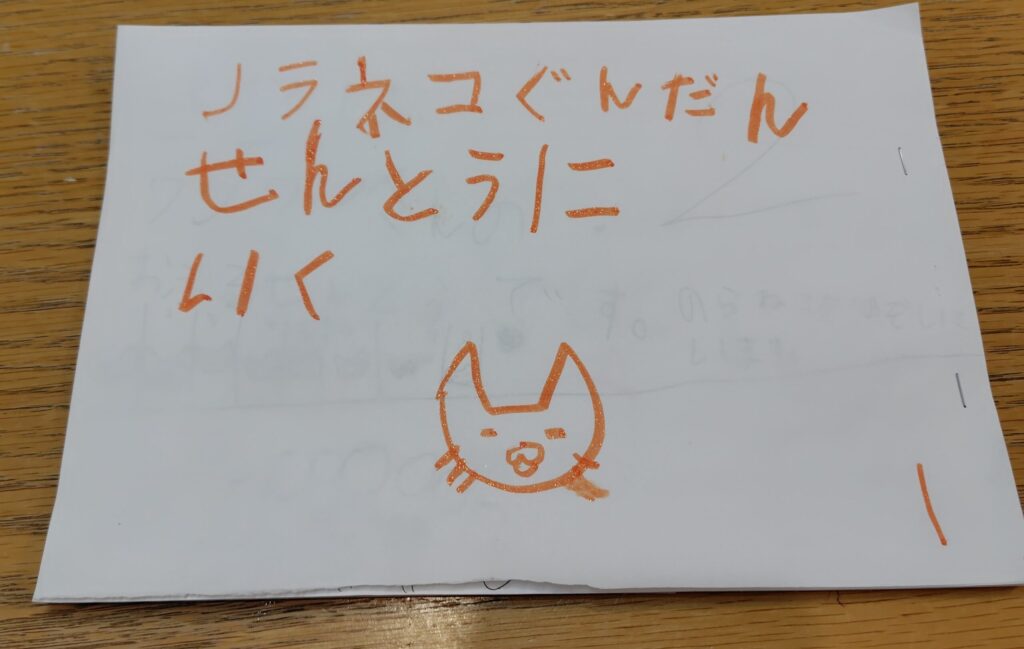 ノラネコぐんだん
せんとうに
いく
1